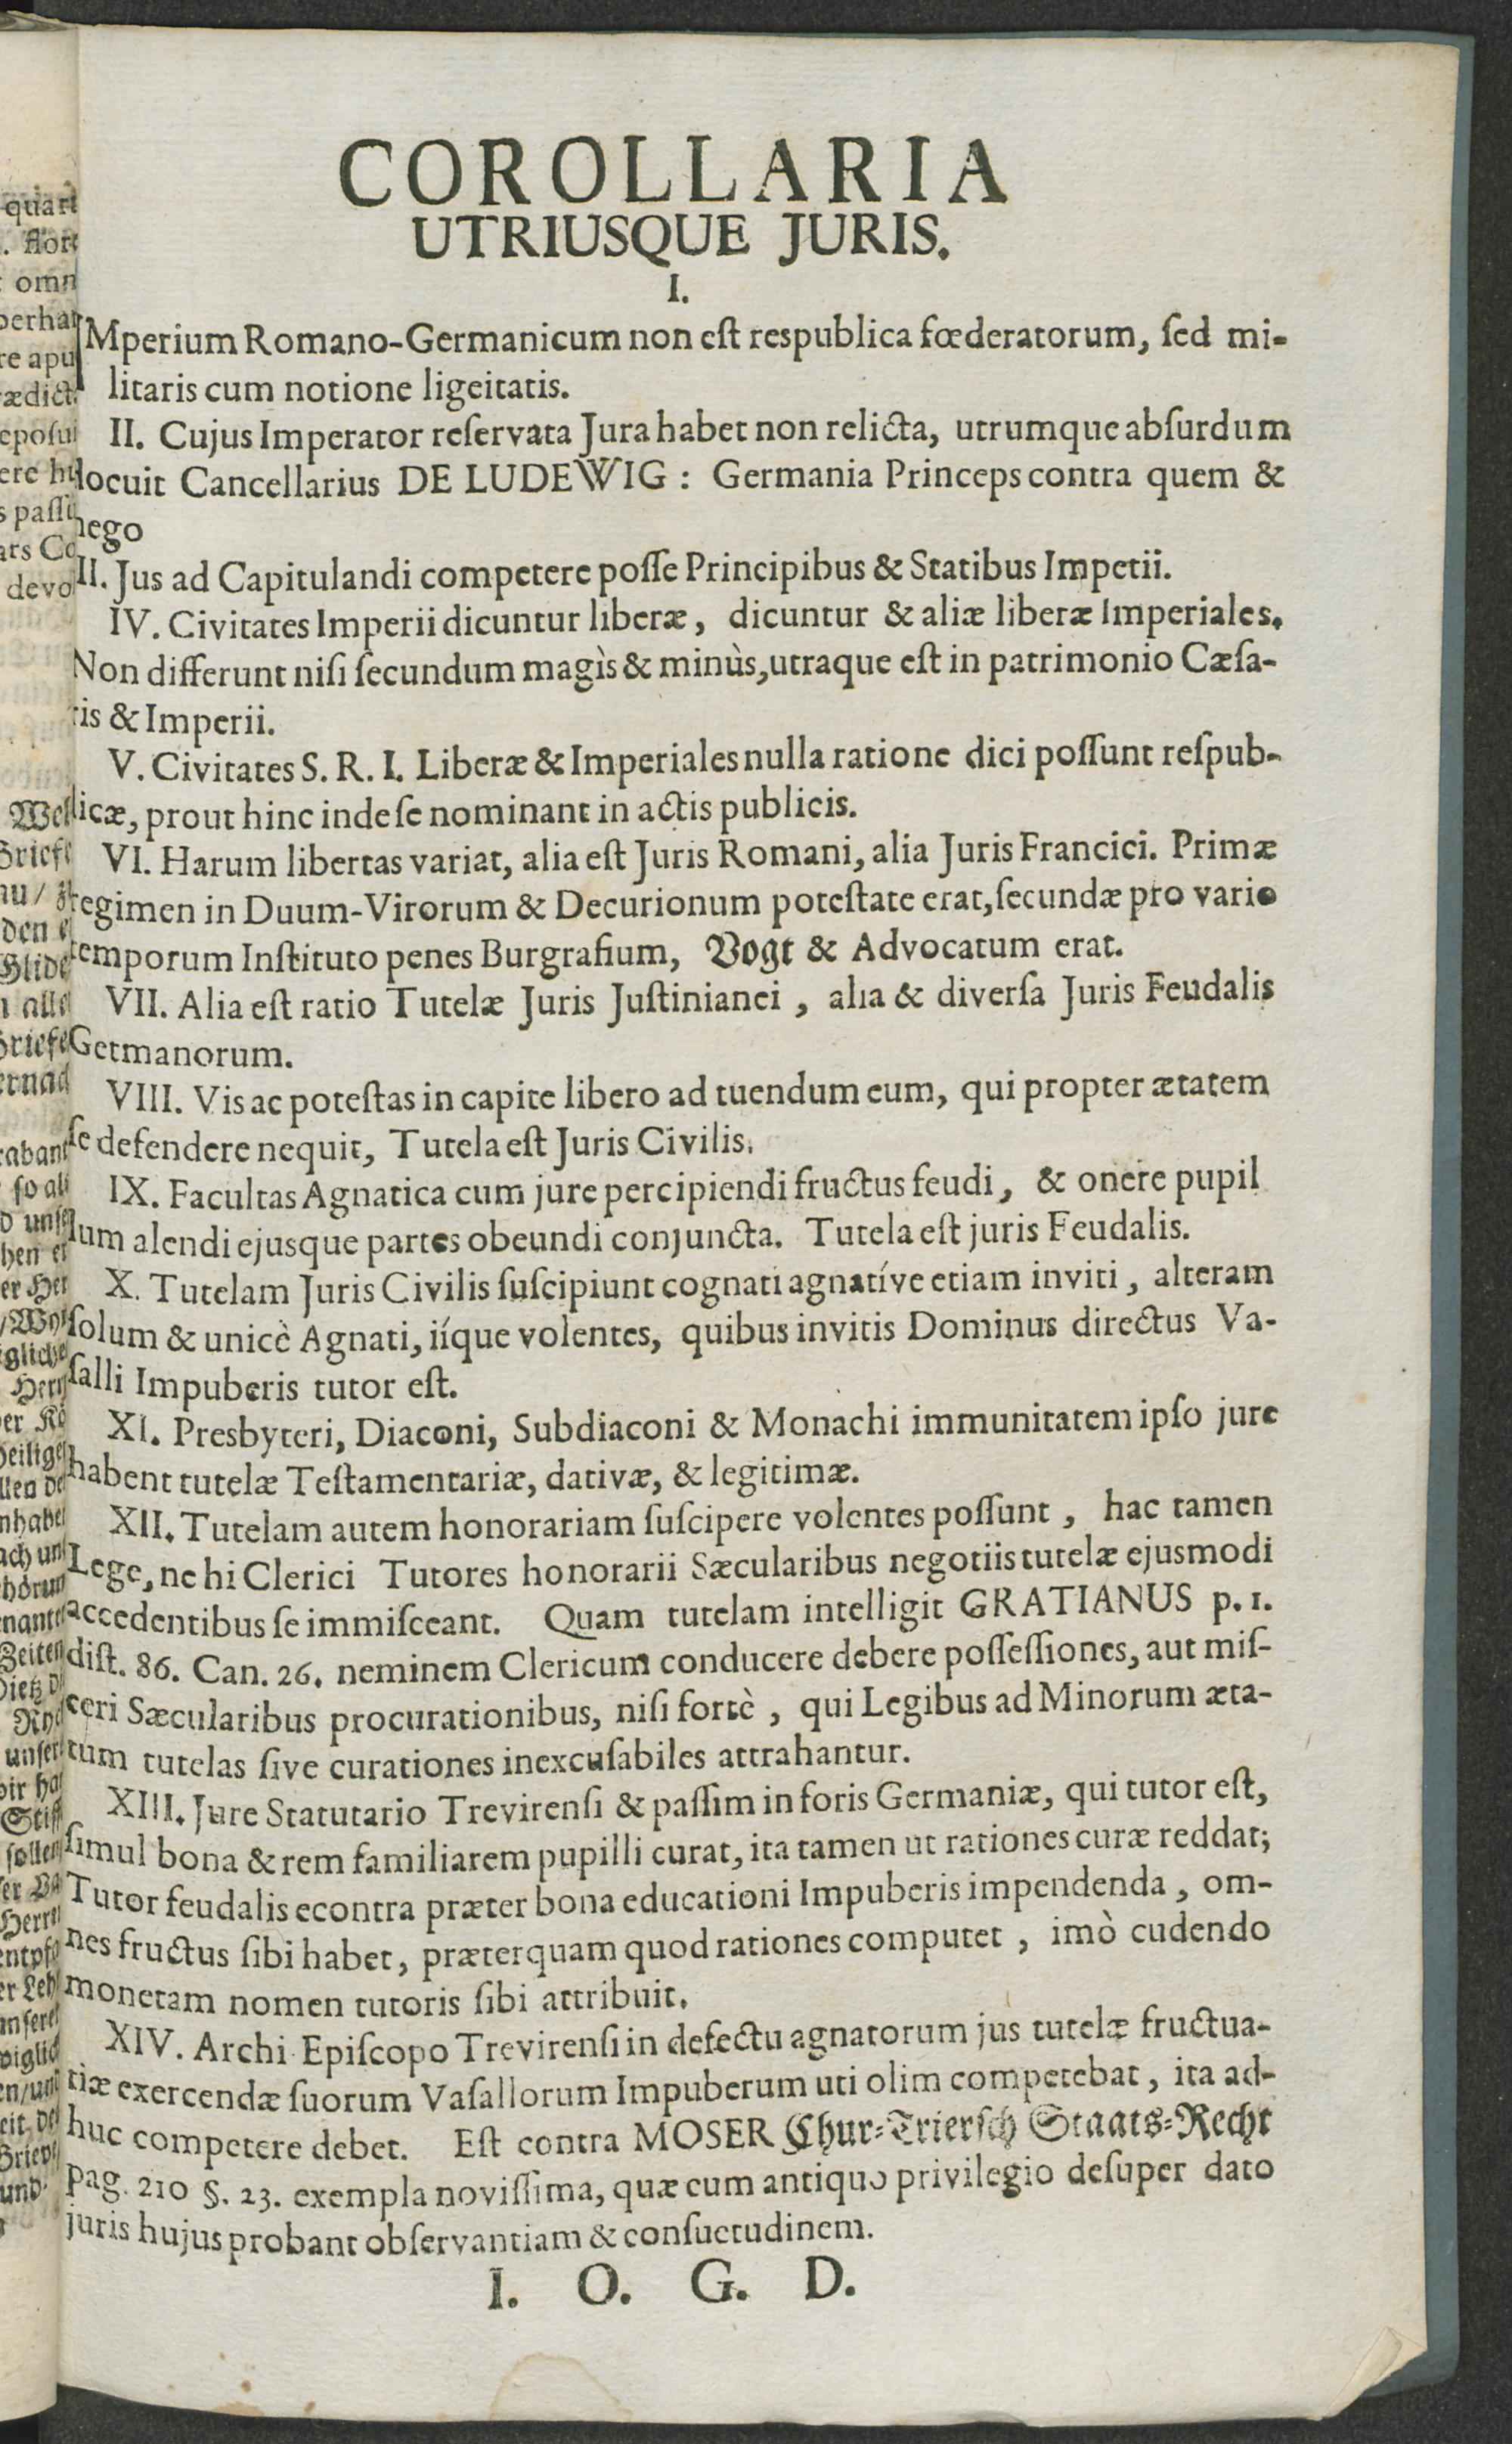 COROLLARIA
UTRIUSQUE JURIS.
I.
IMperium Romano-Germanicum non est respublica fœderatorum, ſed mi-
litaris cum notione ligeitatis.
II. Cujus Imperator reſervata Jura habet non relicta, utrumque abſurdum
docuit Cancellarius DE LUDEWIG: Germania Princeps contra quem &
nego
III. Jus ad Capitulandi competere poſſe Principibus & Statibus Impetii.
IV. Civitates Imperii dicuntur liberæ, dicuntur & aliæ liberæ Imperiales.
Non differunt niſi ſecundum magìs & minùs, utraque est in patrimonio Cæſa-
ris & Imperii.
V. Civitates S. R. I. Liberæ & Imperiales nulla ratione dici poſſunt reſpub-
licæ, prout hinc inde ſe nominant in actis publicis.
VI. Harum libertas variat, alia eſt Juris Romani, alia Juris Francici. Primæ
regimen in Duum-Virorum & Decurionum poteſtate erat, ſecundæ pro vario
temporum Inſtituto penes Burgrafium, Vogt & Advocatum erat.
VII. Alia eſt ratio Tutelæ Juris Juſtinianei, alia & diverſa Juris Feudalis
Getmanorum.
VIII. Vis ac poteſtas in capite libero ad tuendum eum, qui propter ætatem
ſe defendere nequit, Tutela eſt Juris Civilis.
IX. Facultas Agnatica cum jure percipiendi fructus feudi, & onere pupil
lum alendi ejusque partes obeundi conjuncta. Tutela eſt juris Feudalis.
X. Tutelam Juris Civilis ſuſcipiunt cognati agnatíve etiam inviti, alteram
ſolum & unicè Agnati, iíque volentes, quibus invitis Dominus directus Va-
ſalli Impuberis tutor eſt.
XI. Presbyteri, Diaconi, Subdiaconi & Monachi immunitatem ipſo jure
habent tutelæ Teſtamentariæ, dativæ, & legitimæ.
XII. Tutelam autem honorariam ſuſcipere volentes poſſunt, hac tamen
Lege, ne hi Clerici Tutores honorarii Sæcularibus negotiis tutelæ ejusmodi
accedentibus ſe immiſceant. Quam tutelam intelligit GRATIANUS p. 1.
diſt. 86. Can. 26. neminem Clericum conducere debere poſſeſſiones, aut miſ-
ceri Sæcularibus procurationibus, niſi fortè, qui Legibus ad Minorum æta-
tum tutelas ſive curationes inexcuſabiles attrahantur.
XIII. Jure Statutario Trevirenſi & paſſim in foris Germaniæ, qui tutor eſt,
ſimul bona & rem familiarem pupilli curat, ita tamen ut rationes curæ reddat;
Tutor feudalis econtra præter bona educationi Impuberis impendenda, om-
nes fructus ſibi habet, præterquam quod rationes computet, imò cudendo
monetam nomen tutoris ſibi attribuit.
XIV. Archi-Epiſcopo Trevirenſi in defectu agnatorum jus tutelæ fructua-
riæ exercendæ ſuorum Vaſallorum Impuberum uti olim competebat, ita ad-
huc competere debet. Eſt contra MOSER Chur-Trierſch Staats-Recht
pag. 210 §. 23. exempla noviſſima, quæ cum antiquo privilegio deſuper dato
juris hujus probant obſervantiam & conſuetudinem.
I. O. G. D.